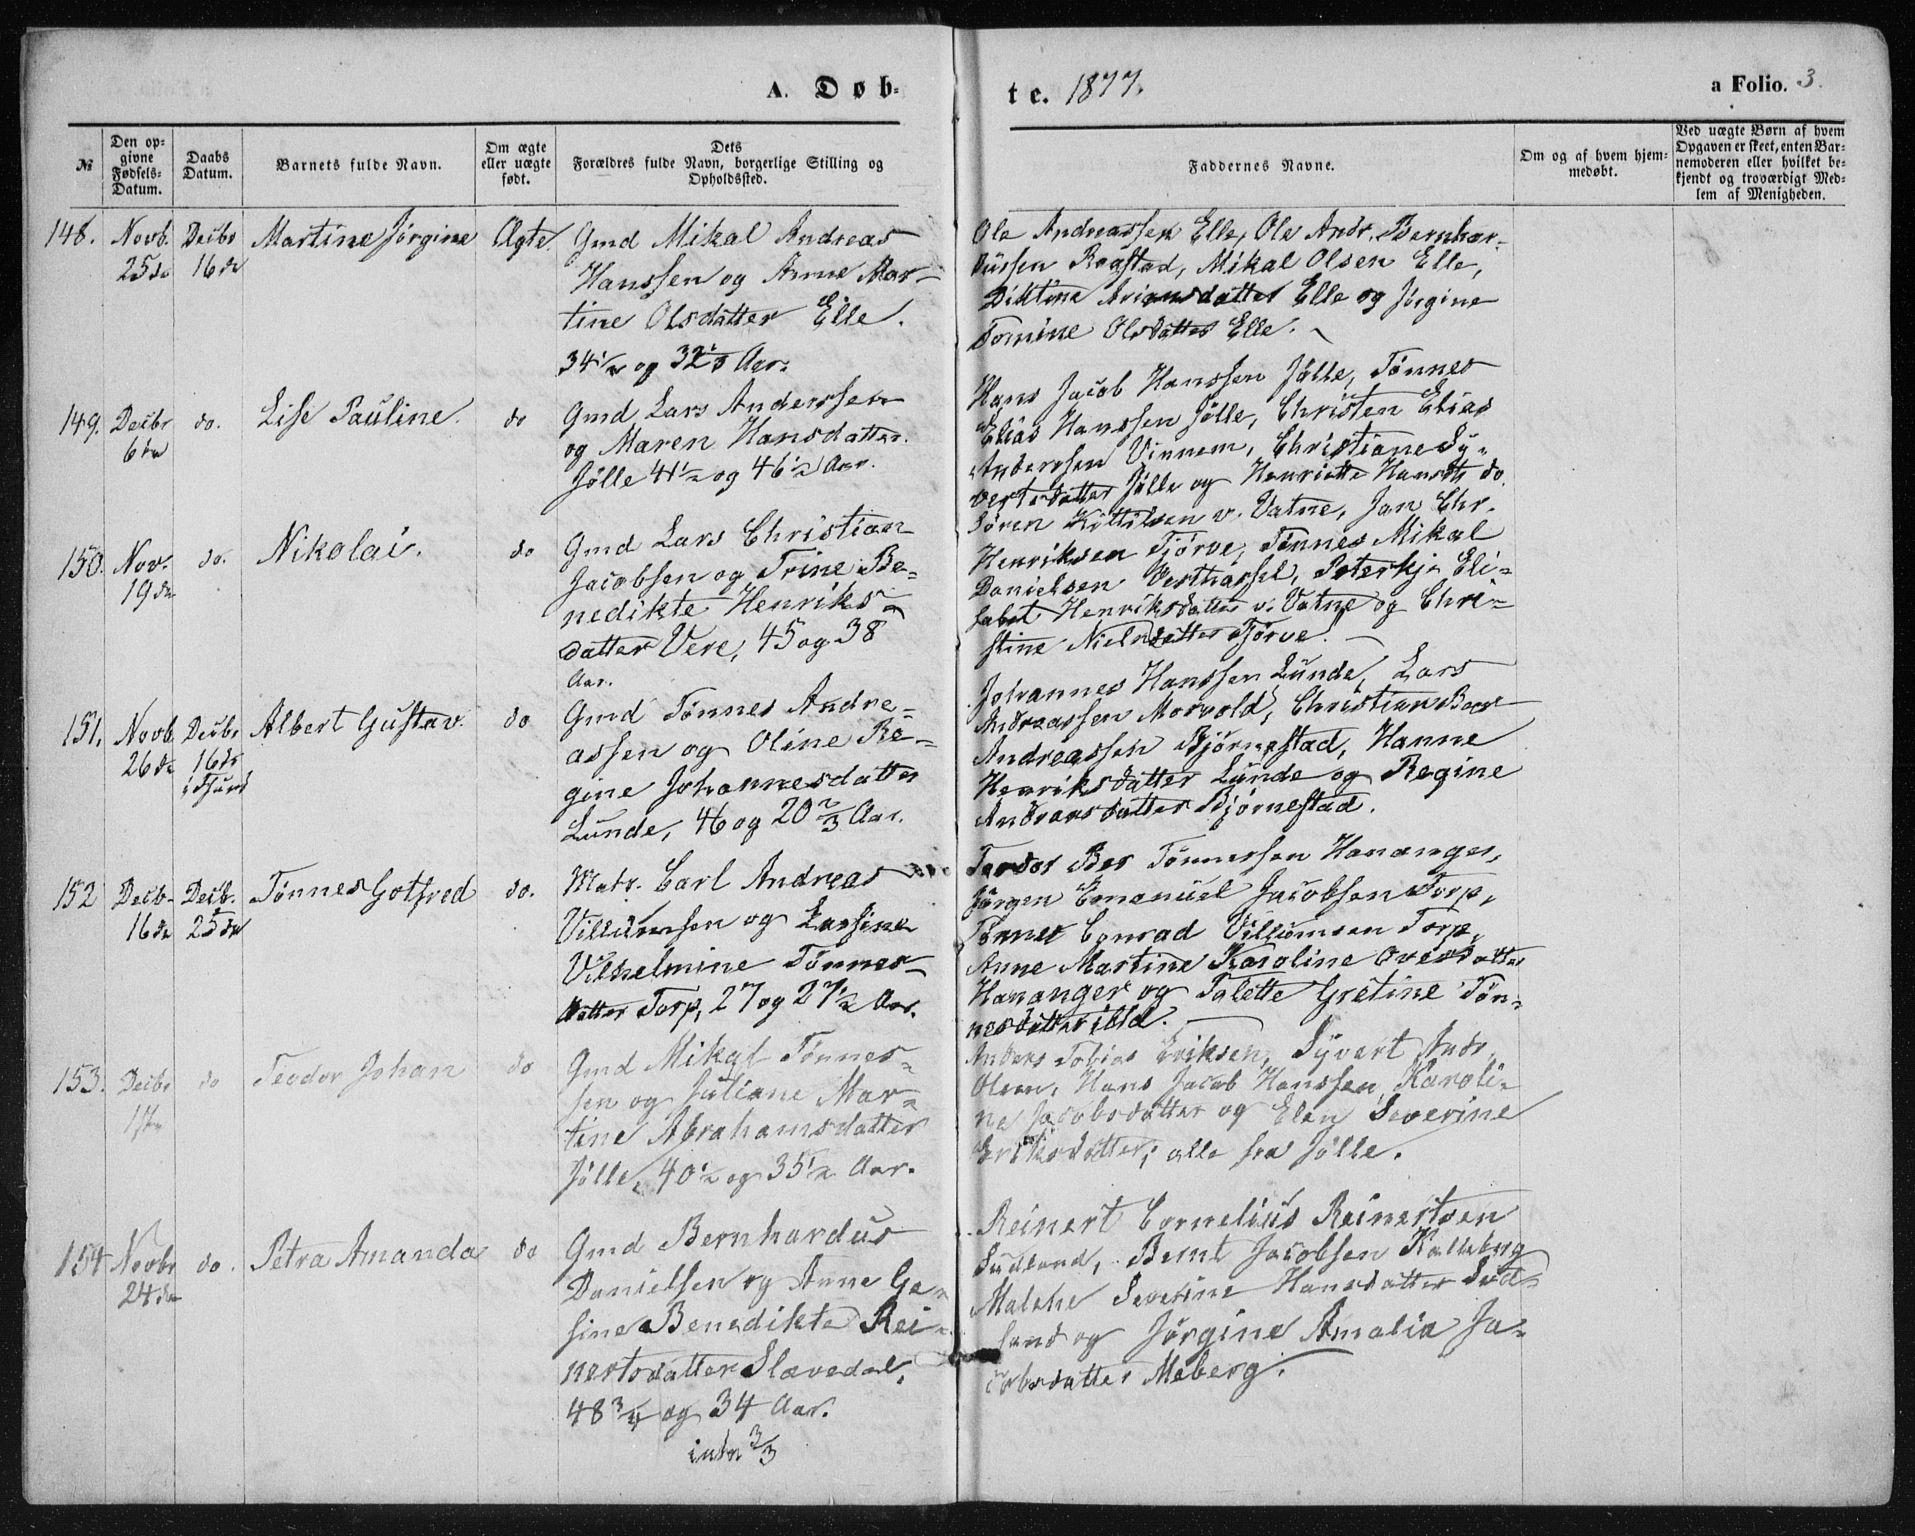 A. Døb-
te. 1877.
a Folio. 3.
№
Den op-
givne
Fødsels-
Datum.
Daabs
Datum.
Barnets fulde Navn.
Om ægte
eller uægte
født.
Dets
Forældres fulde Navn, borgerlige Stilling og
Opholdssted.
Faddernes Navne.
Om og af hvem hjem-
medøbt.
Ved uægte Børn af hvem
Opgaven er skeet, enten Bar-
nemoderen eller hvilket be-
kjendt og troværdigt Med-
lem af Menigheden.
148. Novb. Decbr Martine Jørgine Ægte
25de 16de
Gmd Mikal Andreas
Hanssen og Anne Mar-
tine Olsdatter Elle.
34½ og 32⅓ Aar.
Ole Andreassen Elle, Ole Andr. Bernhar-
dussen Rogstad, Mikal Olsen Elle,
Ariansdatter Elle og Jørgine
Tomine Olsdatter Elle.
149. Decbr do. Lise Pauline. do
6te
Gmd Lars Anderssen
og Maren Hansdatter
Jølle 41½ og 46½ Aar.
Hans Jacob Hanssen Jølle, Tønnes
Elias Hanssen Jølle, Christen Elias
Anderssen Vinnem, Christiane Sy-
vertsdatter Jølle og Henriette Hansdtr do.
150. Nov. do. Nikolai. do
19de
Gmd Lars Christian
Jacobsen og Trine Be-
nedikte Henriks-
datter Vere, 45 og 38
Aar.
Søren Kittilsen v. Vatne, Jan Chr.
Henriksen Tjørve, Tønnes Mikal
Danielsen Vesthassel, Eli-
sabet Henriksdatter v. Vatne og Chri-
stine Nielsdatter Tjørve.
151. Novb Decbr Albert Gustav. do
26de 16de
Gmd Tønnes Andre-
assen og Oline Re-
gine Johannesdatter
Lunde, 46 og 20⅔ Aar.
Johannes Hanssen Lunde, Lars
Andreassen Morvold, Christian Beer
Andreassen Bjørnestad, Hanne
Henriksdatter Lunde og Regine
Andreasdatter Bjørnestad.
152 Decb. Decb. Tønnes Gotfred do.
16de 25de
Matr. Carl Andreas
Villumsen og Larsine
Vilhelmine Tønnes-
datter Torp, 27 og 27½ Aar.
Teodor Ber Tønnessen Hananger,
Jørgen Emanuel Jacobsen Torp,
Tønnes Conrad Villumsen Torp,
Anne Martine Karoline Ovesdatter
Hananger og Talette Gretine Tøn-
nesdatter ibid.
153. Decbr do Teodor Johan do
Gmd Mikal Tønnes-
sen og Juliane Mar-
tine Abrahamsdatter
Jølle, 40½ og 35½ Aar.
Anders Tobias Eriksen, Syvert Andr.
Olsen, Hans Jacob Hanssen, Karoli-
ne Jacobsdatter og Elen Severine
Eriksdatter; alle fra Jølle.
154 Novbr do. Petra Amanda do
24de
Gmd Bernhardus
Danielsen og Anne Ge-
sine Benedikte Rei-
nertsdatter Slævedal,
48¾ og 34 Aar.
Reinert Cornelius Reinertsen
Sudland, Bernt Jacobsen Kalleberg
Malene Severine Hansdatter Sud-
land og Jørgine Amalia Ja-
cobsdatter Meberg.